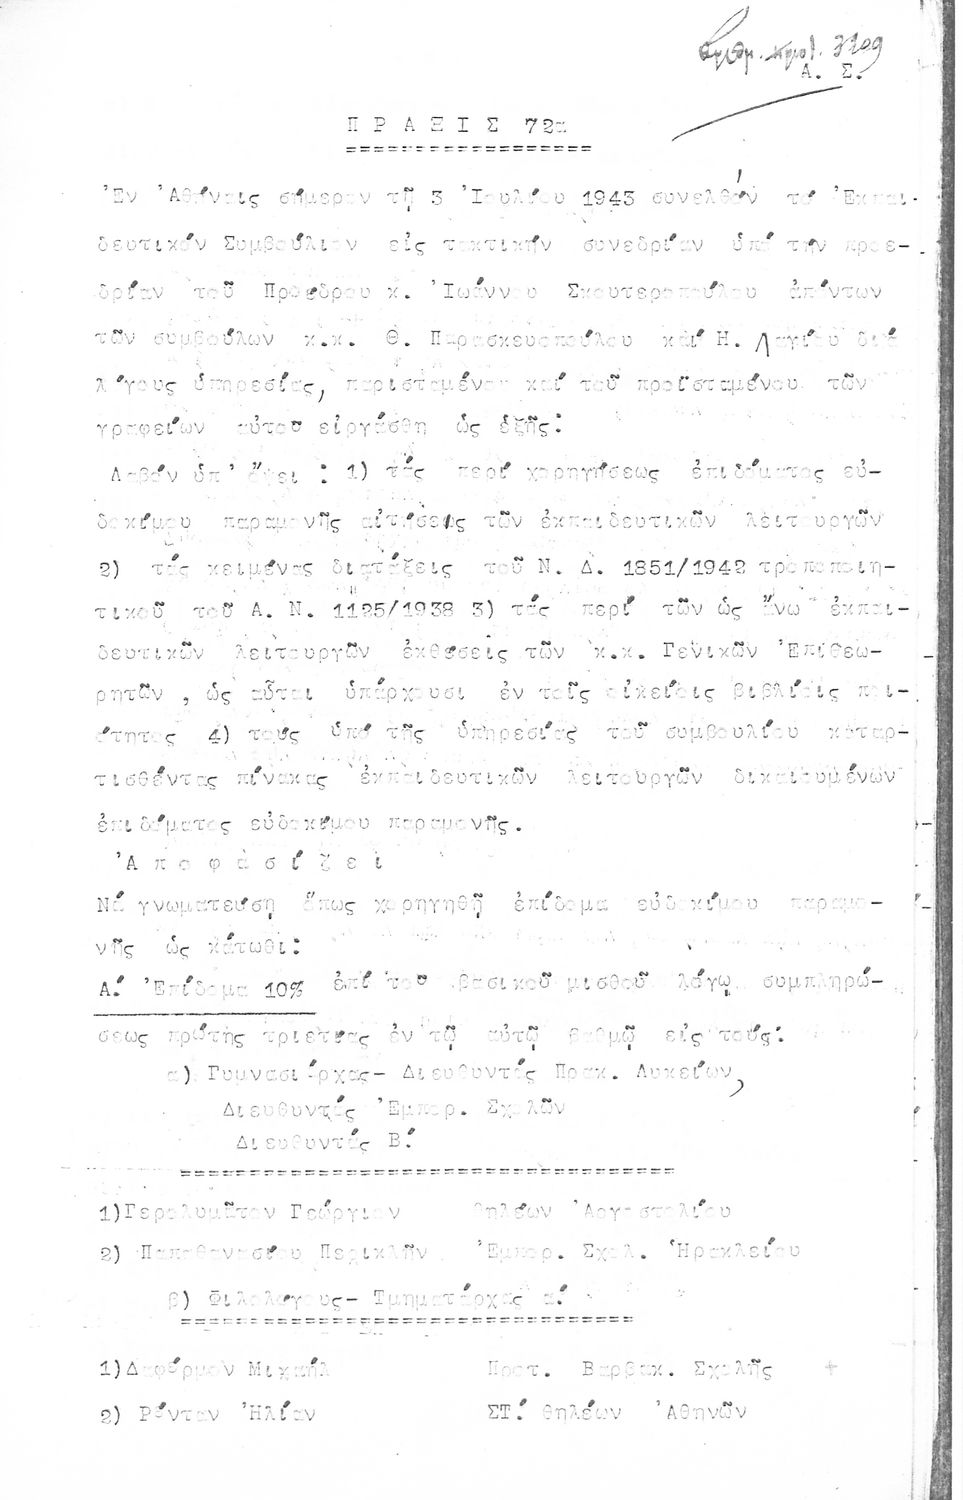 Αριθμ. πρωτ. 3209
Α. Σ.
Π Ρ Α Ξ Ι Σ 72α
Ἐν Ἀθήναις σήμερον τῇ 3 Ἰουλίου 1943 συνελθόν τό Ἐκπαι-
δευτικόν Συμβούλιον εἰς τακτικήν συνεδρίαν ὑπό τήν προε-
δρίαν τοῦ Προέδρου κ. Ἰωάννου Σκουτεροπούλου ἀπόντων
τῶν συμβούλων κ.κ. Θ. Παρασκευοπούλου καί Η. Λαγίου διά
λόγους ὑπηρεσίας, παρισταμένου καί τοῦ προϊσταμένου τῶν
γραφείων αὐτοῦ εἰργάσθη ὡς ἑξῆς:
Λαβόν ὑπ' ὄψει : 1) τάς περί χορηγήσεως ἐπιδόματος εὐ-
δοκίμου παραμονῆς αἰτήσεις τῶν ἐκπαιδευτικῶν λειτουργῶν
2) τάς κειμένας διατάξεις τοῦ Ν. Δ. 1851/1942 τροποποιη-
τικοῦ τοῦ Α. Ν. 1125/1938 3) τάς περί τῶν ὡς ἄνω ἐκπαι-
δευτικῶν λειτουργῶν ἐκθέσεις τῶν κ.κ. Γενικῶν Ἐπιθεω-
ρητῶν , ὡς αὗται ὑπάρχουσι ἐν τοῖς οἰκείοις βιβλίοις ποι-
ότητος 4) τούς ὑπό τῆς ὑπηρεσίας τοῦ συμβουλίου καταρ-
τισθέντας πίνακας ἐκπαιδευτικῶν λειτουργῶν δικαιουμένων
ἐπιδόματος εὐδοκίμου παραμονῆς.
Ἀ π ο φ α σ ί ζ ε ι
Νά γνωματεύσῃ ὅπως χορηγηθῇ ἐπίδομα εὐδοκίμου παραμο-
νῆς ὡς κάτωθι:
Α΄ Ἐπίδομα 10% ἐπί τοῦ βασικοῦ μισθοῦ λόγῳ συμπληρώ-
σεως πρώτης τριετίας ἐν τῷ αὐτῷ βαθμῷ εἰς τούς:
α) Γυμνασιάρχας- Διευθυντάς Πρακ. Λυκείων,
Διευθυντάς Ἐμπορ. Σχολῶν
Διευθυντάς Β΄
1)Γερολυμᾶτον Γεώργιον θηλέων Ἀργοστολίου
2) Παπαθανασίου Περικλῆν Ἐμπορ. Σχολ. Ἡρακλείου
β) Φιλολόγους- Τμηματάρχας α΄
1)Δαφέρμον Μιχαήλ Προτ. Βαρβακ. Σχολῆς +
2) Ρένταν Ἠλίαν ΣΤ΄ θηλέων Ἀθηνῶν